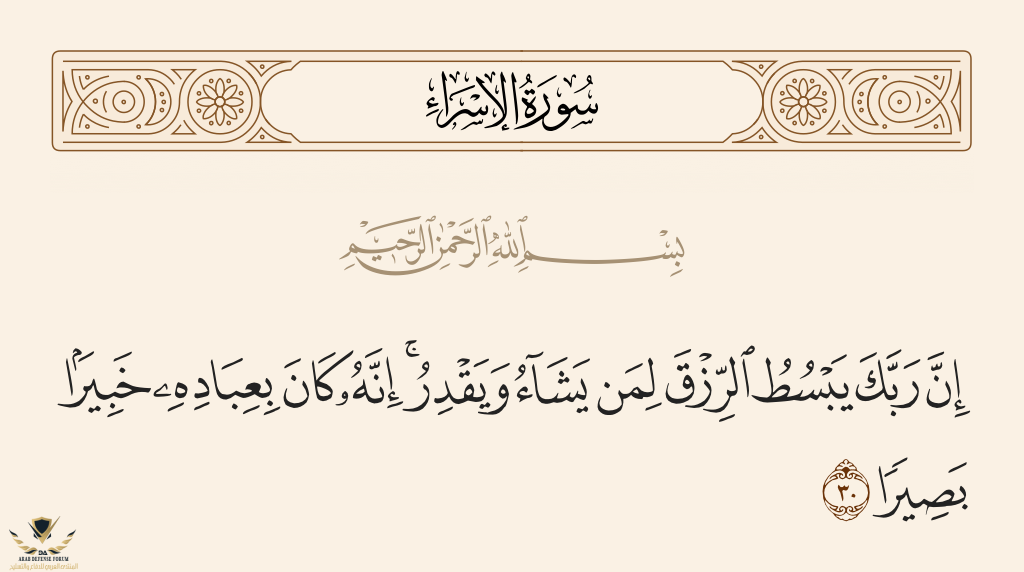 سُورَةُ الإِسْرَاءِ
بِسْمِ ٱللَّهِ ٱلرَّحْمَٰنِ ٱلرَّحِيمِ
إِنَّ رَبَّكَ يَبْسُطُ ٱلرِّزْقَ لِمَن يَشَآءُ وَيَقْدِرُ ۚ إِنَّهُۥ كَانَ بِعِبَادِهِۦ خَبِيرًۢا
بَصِيرًا ٣٠
DA
ARAB DEFENSE FORUM
المنتدى العربي للدفاع والتسليح